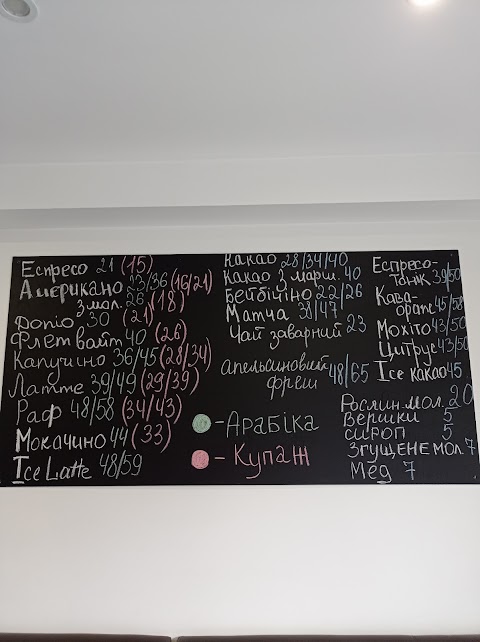 Еспресо 21 (15)
Американо 23/36 (16/21)
з мол. 26 (18)
Допіо 30 (21)
Флет вайт 40 (26)
Капучино 36/45 (28/34)
Латте 39/49 (29/39)
Раф 48/58 (34/43)
Мокачино 44 (33)
Ice Latte 48/59
Какао 28/34/40
Какао з марш. 40
Бейбічіно 22/26
Матча 38/47
Чай заварний 23
Апельсиновий
фреш 48/65
- Арабіка
- Купаж
Еспресо-
тонік 39/50
Кава-
оранж 45/58
Мохіто 43/50
Цитрус 43/50
Ice какао 45
Рослин. мол. 20
Вершки 5
сироп 5
Згущене мол. 7
Мед 7